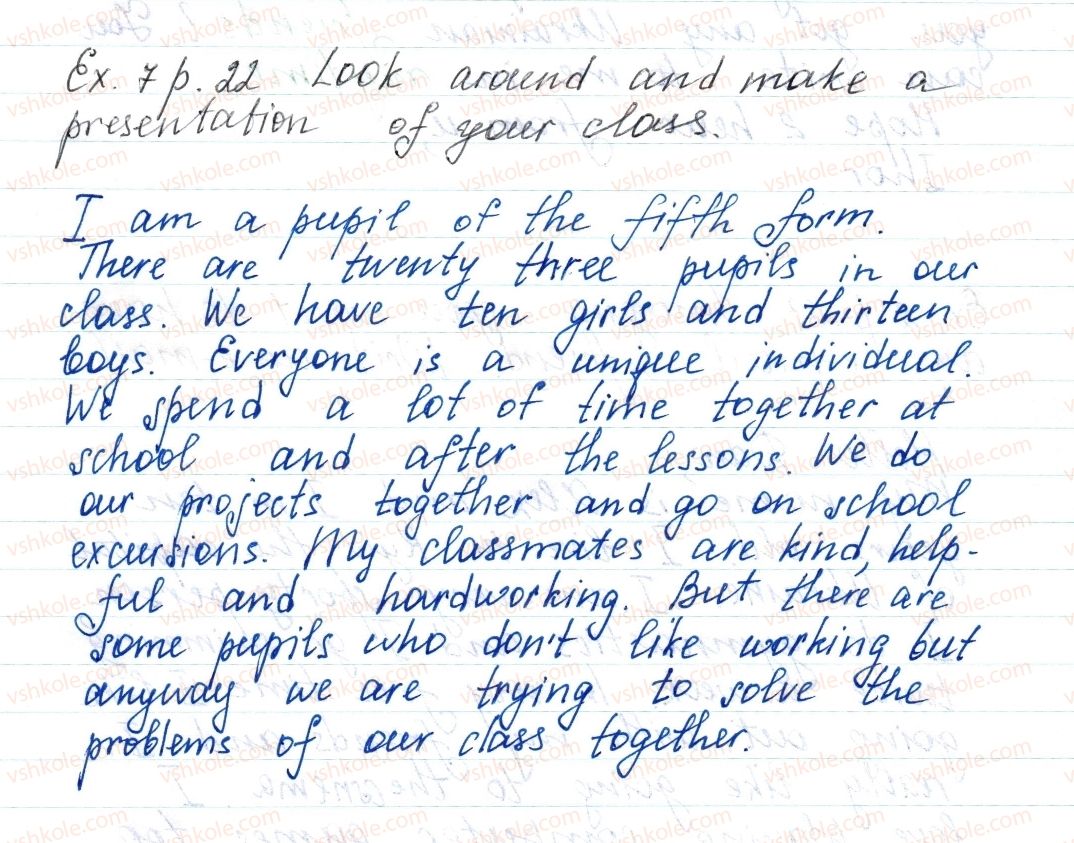 Ex. 7 p. 22 Look around and make a
presentation of your class.
I am a pupil of the fifth form.
There are twenty three pupils in our
class. We have ten girls and thirteen
boys. Everyone is a unique individual.
We spend a lot of time together at
school and after the lessons. We do
our projects together and go on school
excursions. My classmates are kind, help-
ful and hardworking. But there are
some pupils who don't like working but
anyway we are trying to solve the
problems of our class together.